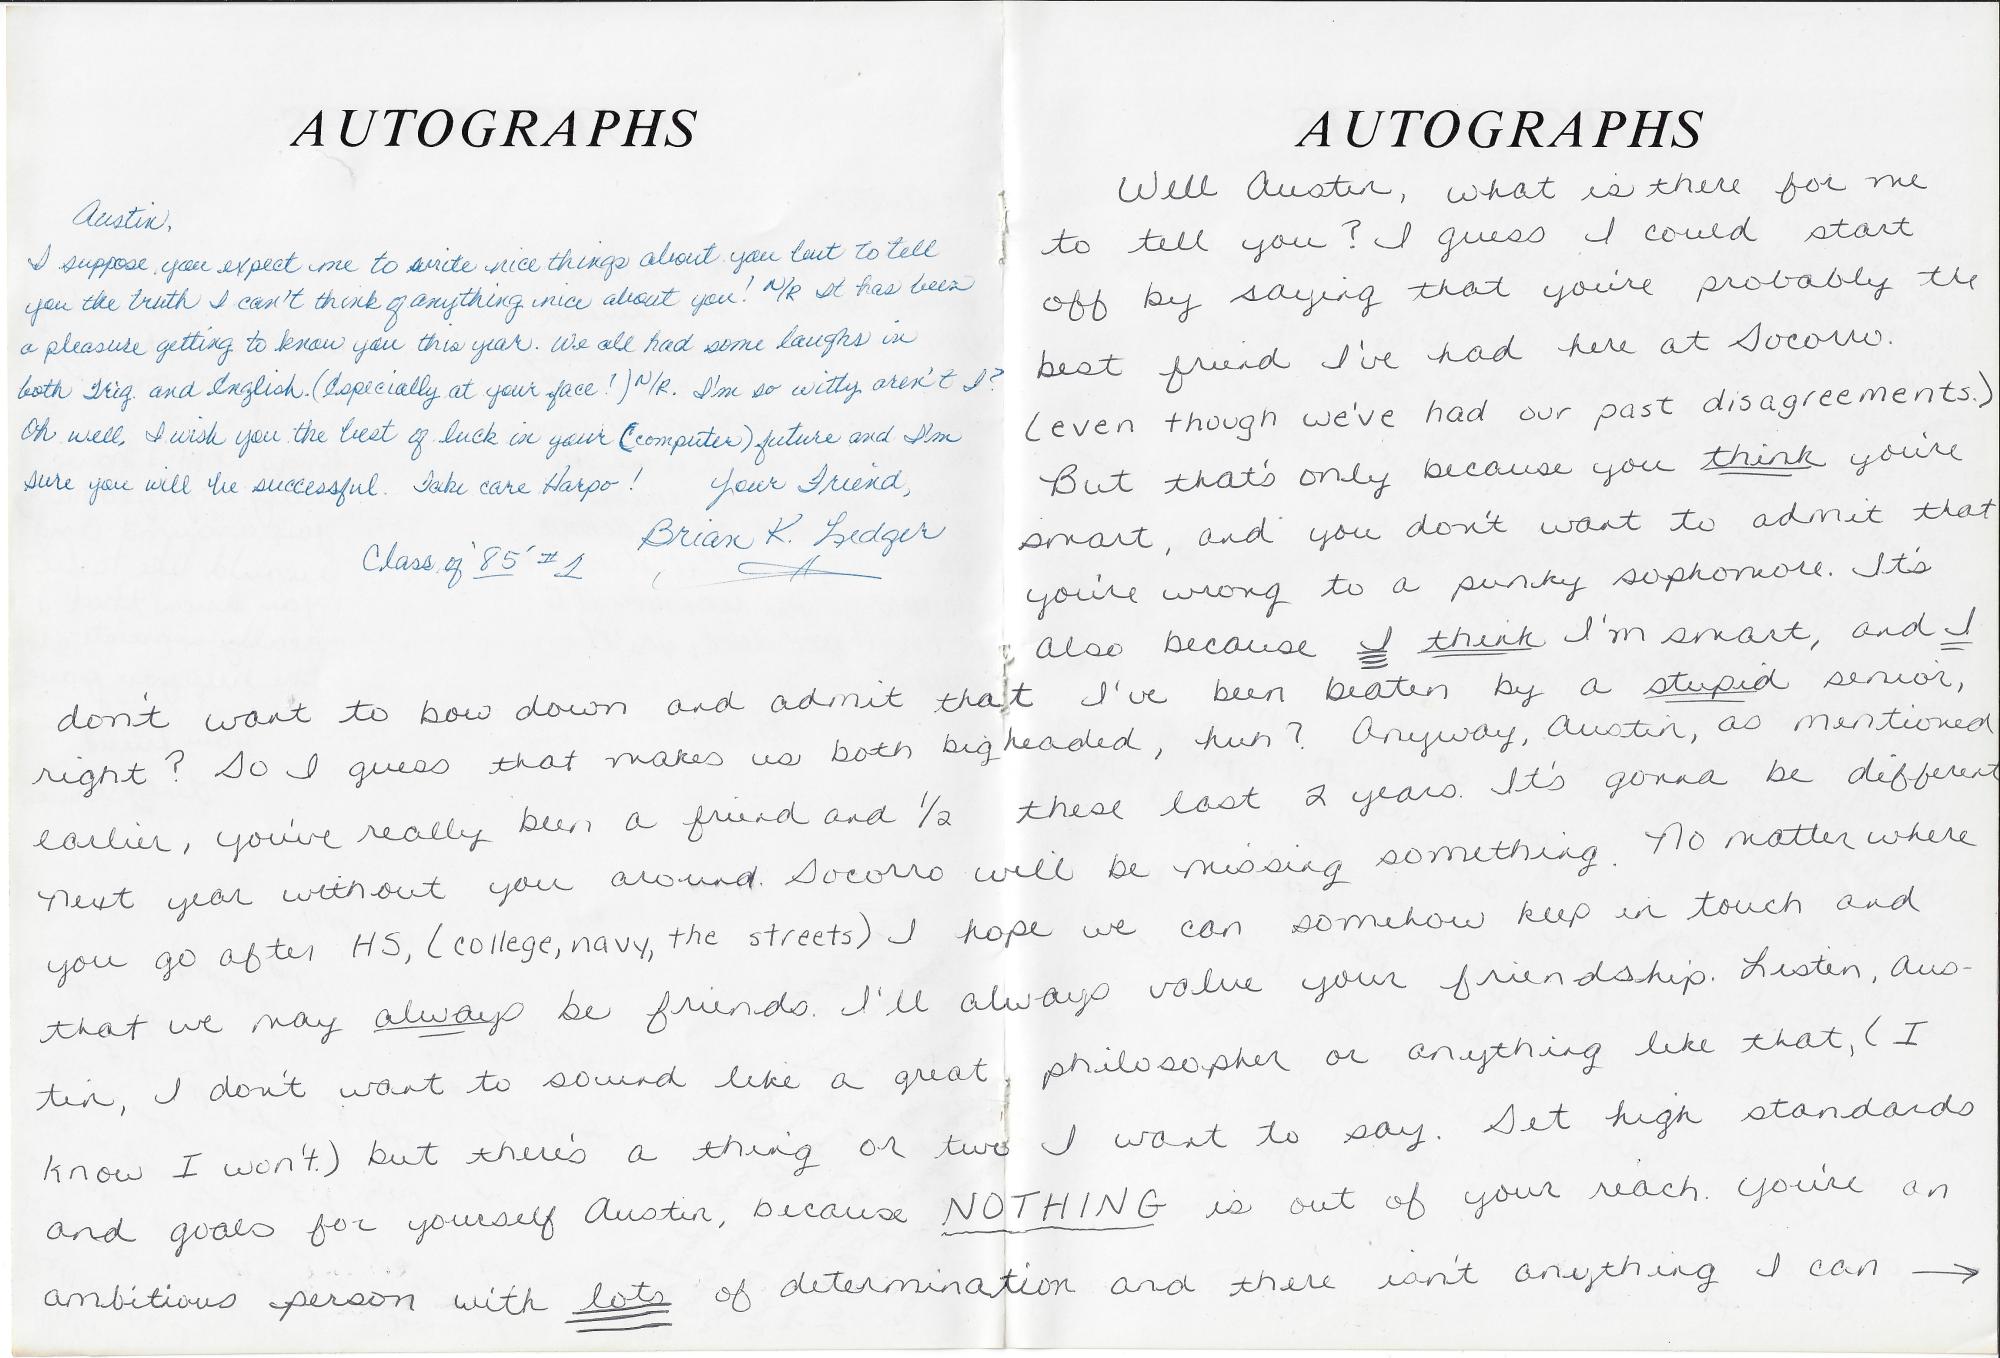 AUTOGRAPHS
Austin,
I suppose you expect me to write nice things about you but to tell
you the truth I can't think of anything nice about you! N/R It has been
a pleasure getting to know you this year. We all had some laughs in
both Trig. and English. (Especially at your face!) N/R. I'm so witty aren't I?
Oh well, I wish you the best of luck in your (computer) future and I'm
sure you will be successful. Take care Harpo! Your Friend,
Brian K. Ledger
Class of '85' #1
AUTOGRAPHS
Well Austin, what is there for me
to tell you? I guess I could start
off by saying that you're probably the
best friend I've had here at Socorro.
(even though we've had our past disagreements.)
But that's only because you think you're
smart, and you don't want to admit that
you're wrong to a punky sophomore. It's
also because I think I'm smart, and I
don't want to bow down and admit that I've been beaten by a stupid senior,
right? So I guess that makes us both bigheaded, huh? Anyway, Austin, as mentioned
earlier, you've really been a friend and 1/2 these last 2 years. It's gonna be different
next year without you around. Socorro will be missing something. No matter where
you go after HS, (college, navy, the streets) I hope we can somehow keep in touch and
that we may always be friends. I'll always value your friendship. Listen, Aus-
tin, I don't want to sound like a great philosopher or anything like that, (I
know I won't.) but there's a thing or two I want to say. Set high standards
and goals for yourself Austin, because NOTHING is out of your reach. You're an
ambitious person with lots of determination and there isn't anything I can →